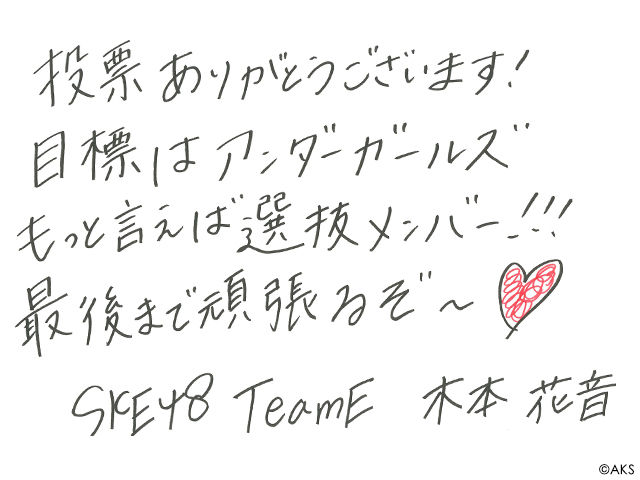 投票ありがとうございます!
目標はアンダーガールズ
もっと言えば選抜メンバー!!!
最後まで頑張るぞ〜
SKE48 TeamE 木本花音
©AKS